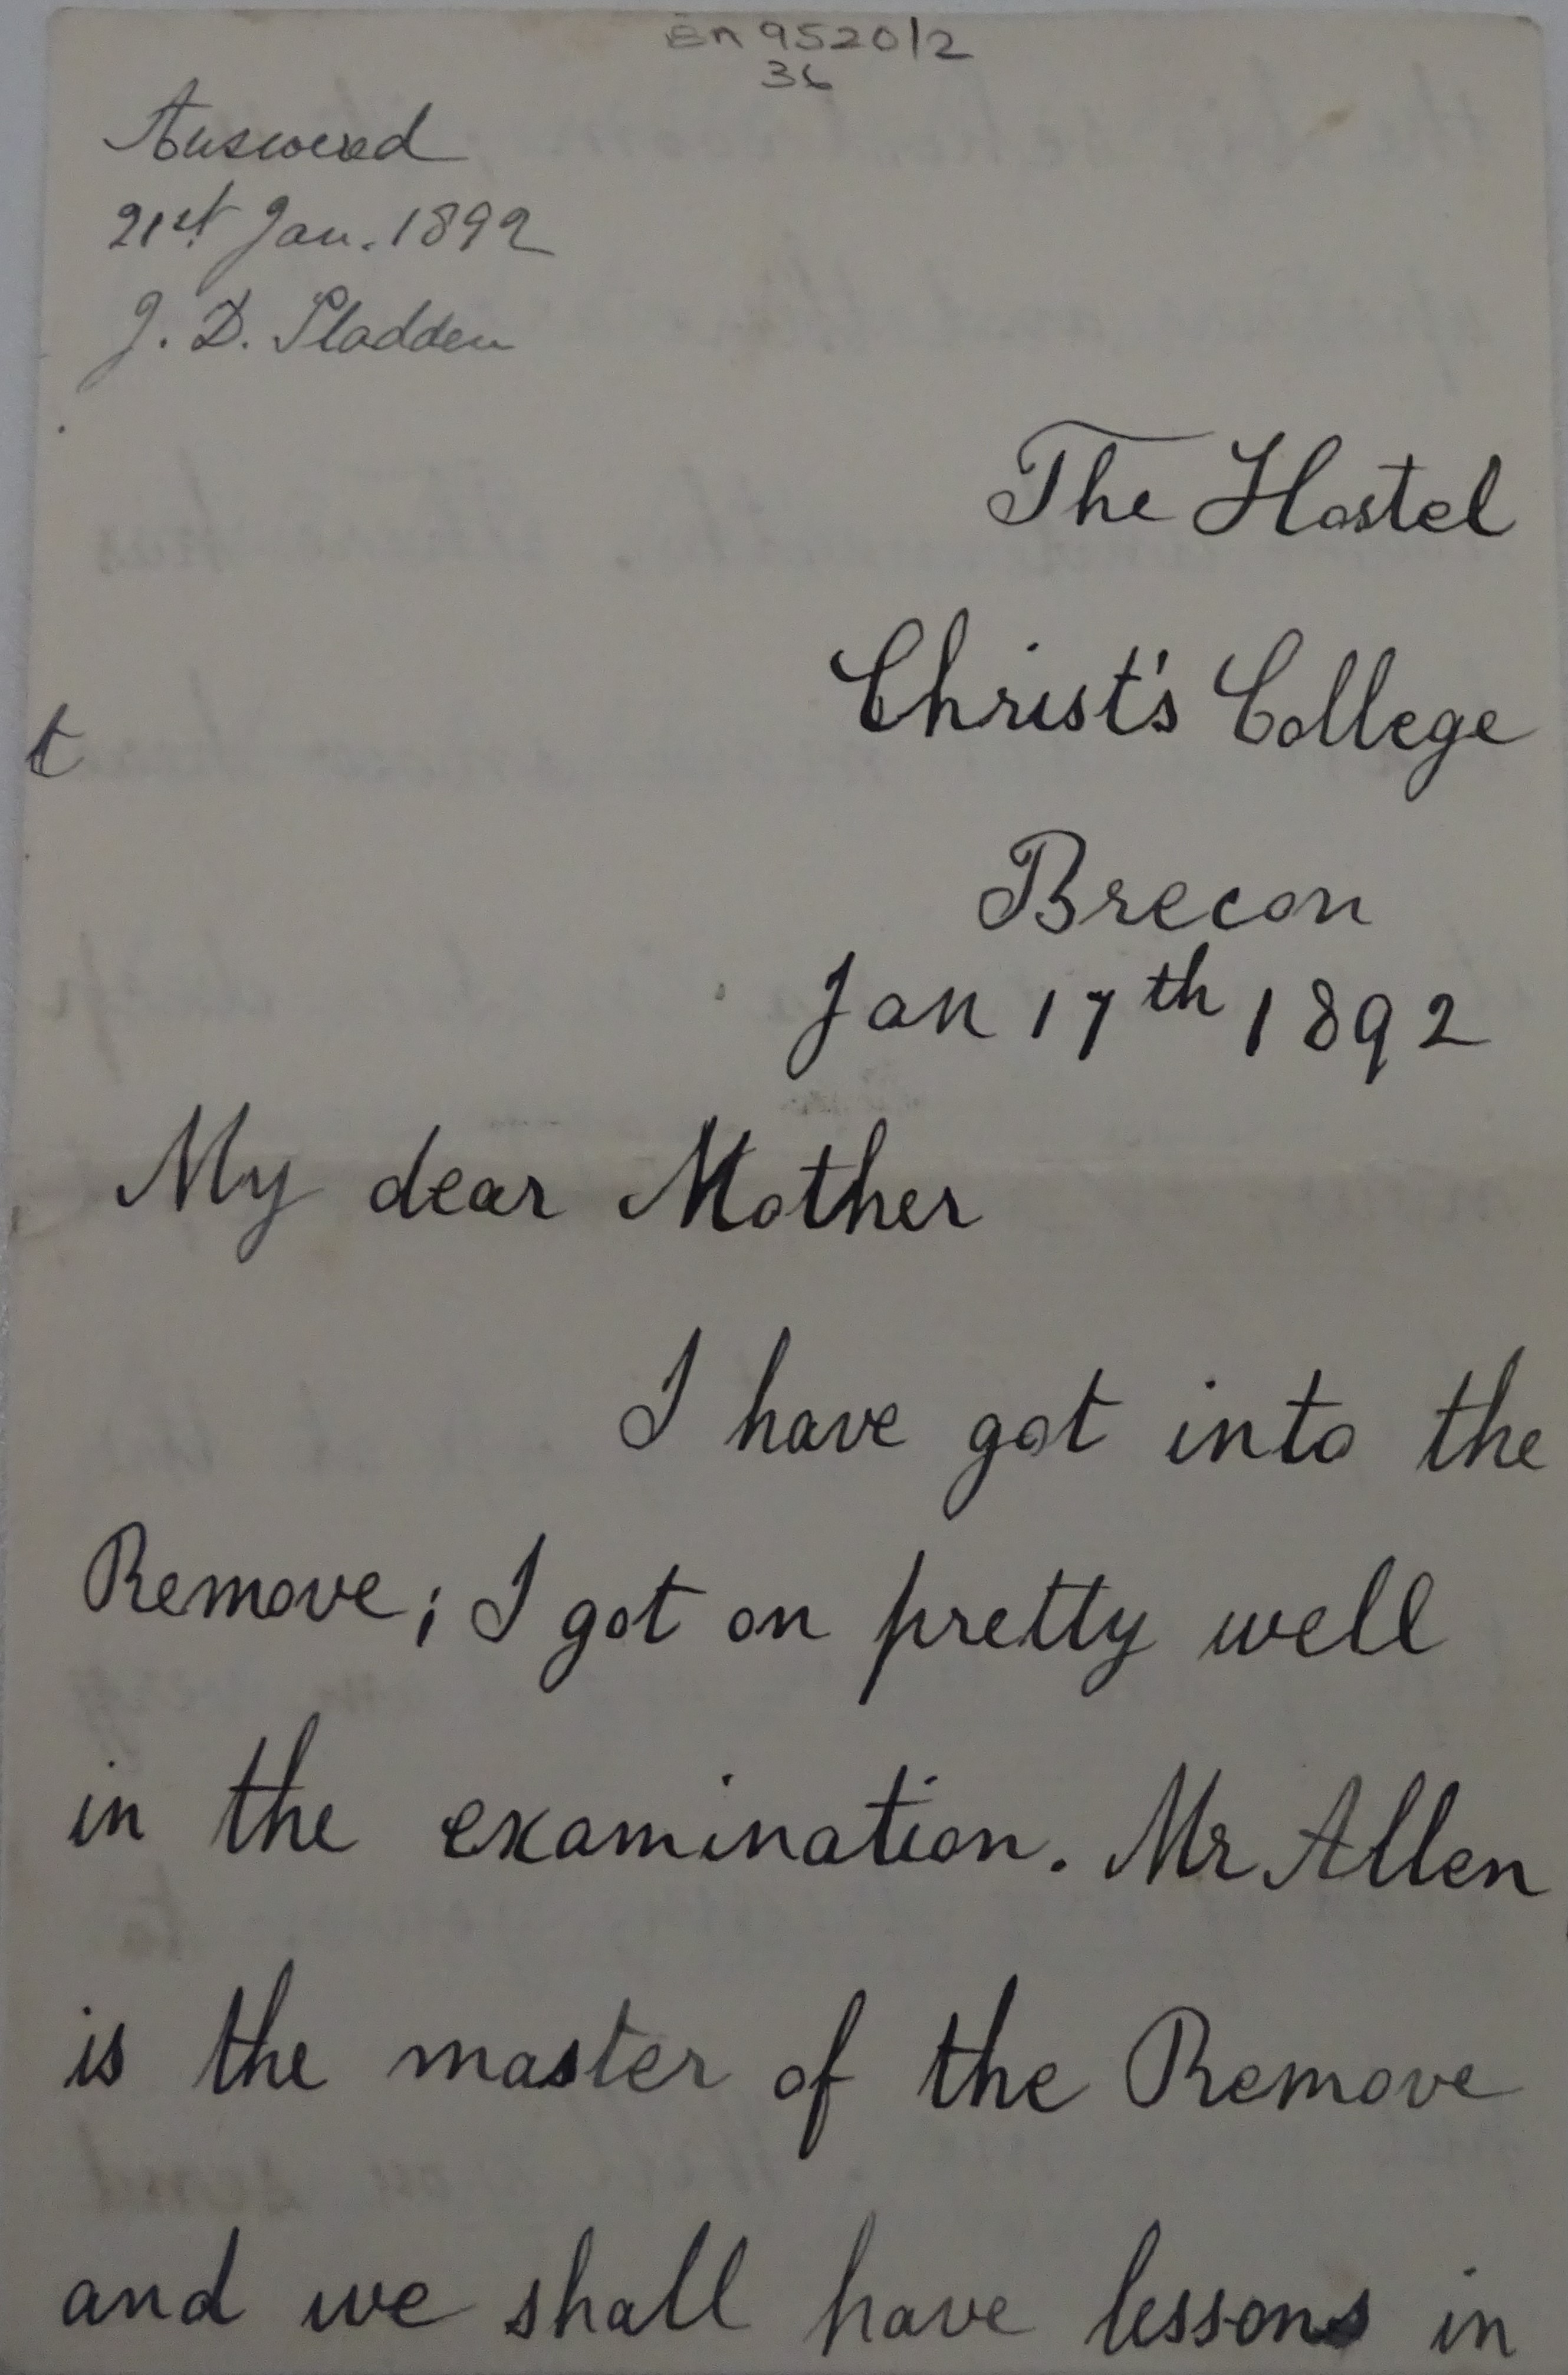 En 9520/2
36
Answered
21st Jan. 1892
J. D. Sladden
The Hostel
Christ's College
t
Brecon
Jan 17th 1892
My dear Mother
I have got into the
Remove; I got on pretty well
in the examination. Mr Allen
is the master of the Remove
and we shall have lessons in